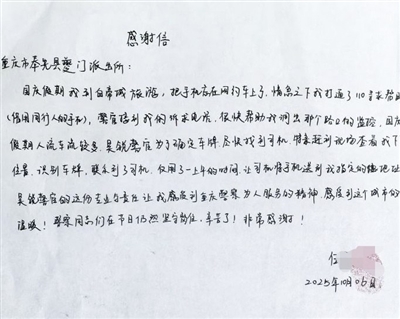 感谢信
重庆市奉节县夔门派出所：
国庆假期我到白帝城旅游，把手机落在网约车上了，情急之下我打通了110寻求帮助
(借用同行人的手机)，警官接到我的诉求电话，很快帮助我调出那个路口的监控，国庆
假期人流车流较多，吴能警官为了确定车牌，尽快找到司机，特意赶到现场查看我下车
位置，识别车牌，联系到了司机，仅用了一上午的时间，让司机将手机送到我指定的地址
吴能警官的这份专业与责任让我感受到重庆警察为人服务的精神，感受到这个城市的
温暖！警察同志们在节日仍然坚守岗位，辛苦了！非常感谢！
任
2025年10月05日